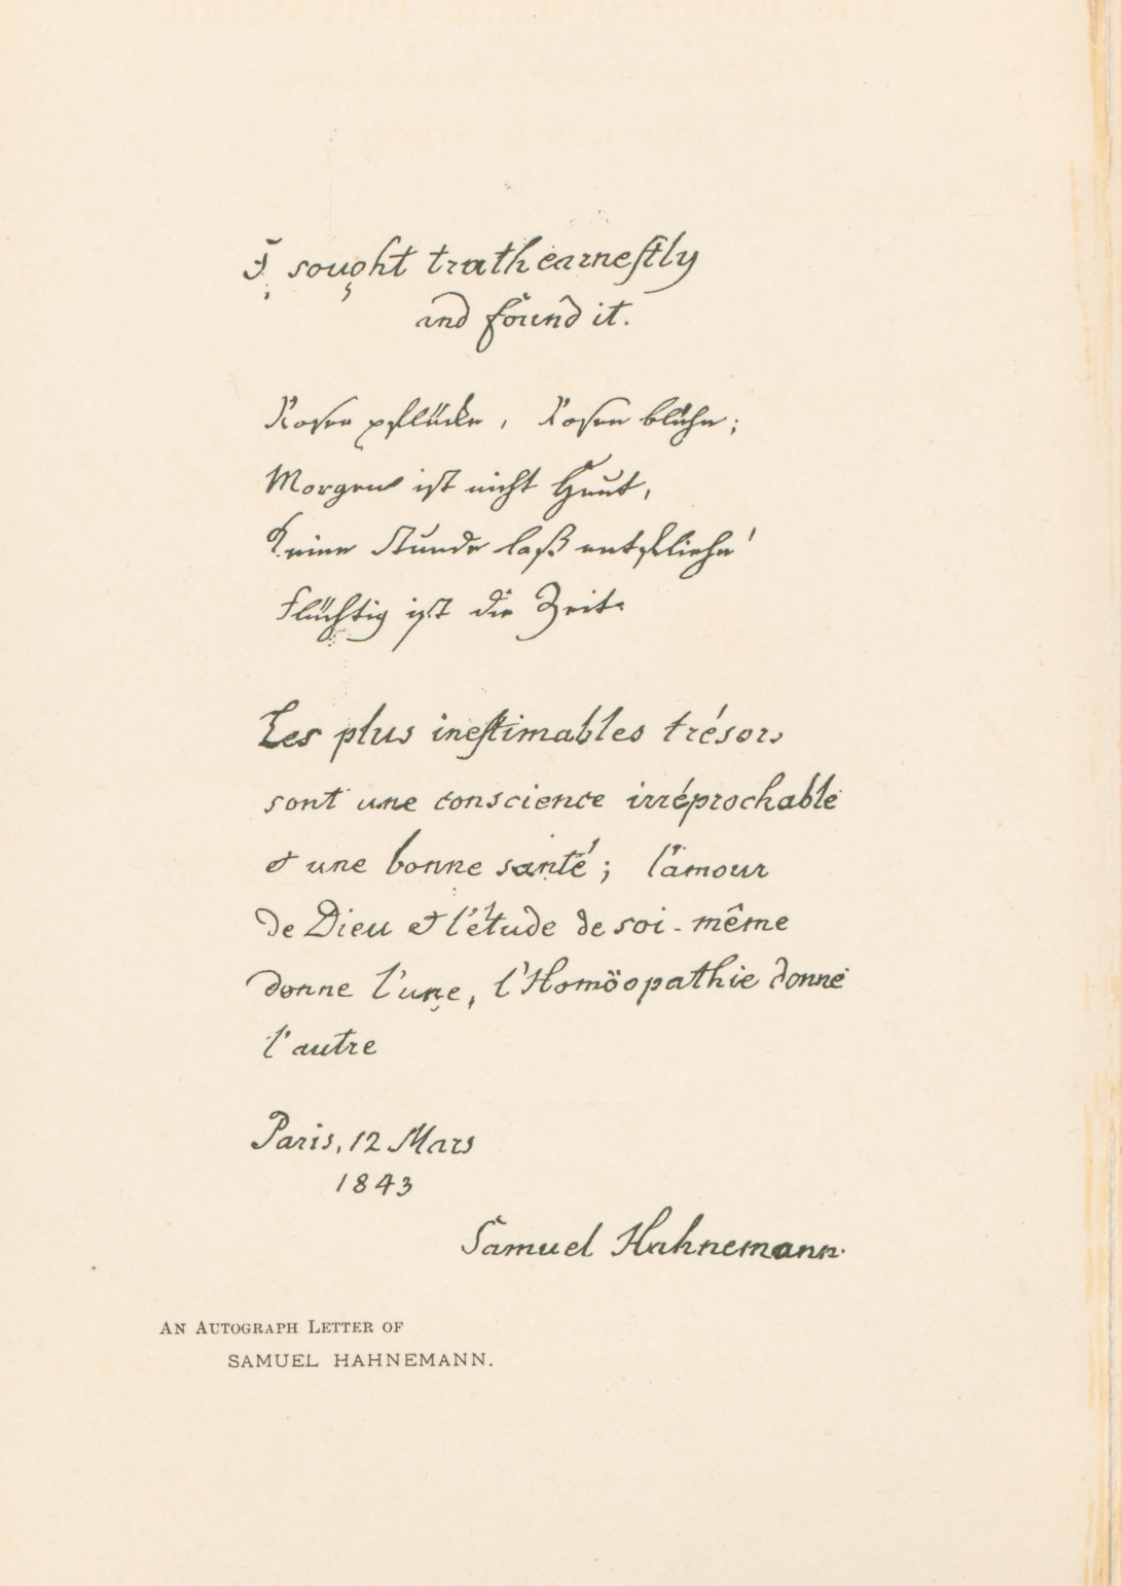 I sought truth earneſtly
and found it.
Rosen pflücke, Rosen blühn;
Morgen ist nicht heut,
Keine Stunde laß entfliehn!
Flüchtig ist die Zeit.
Les plus ineſtimables trésors
sont une conscience irréprochable
et une bonne santé; l'amour
de Dieu et l'étude de soi-même
donne l'une, l'Homöopathie donne
l'autre
Paris, 12 Mars
1843
Samuel Hahnemann.
AN AUTOGRAPH LETTER OF
SAMUEL HAHNEMANN.